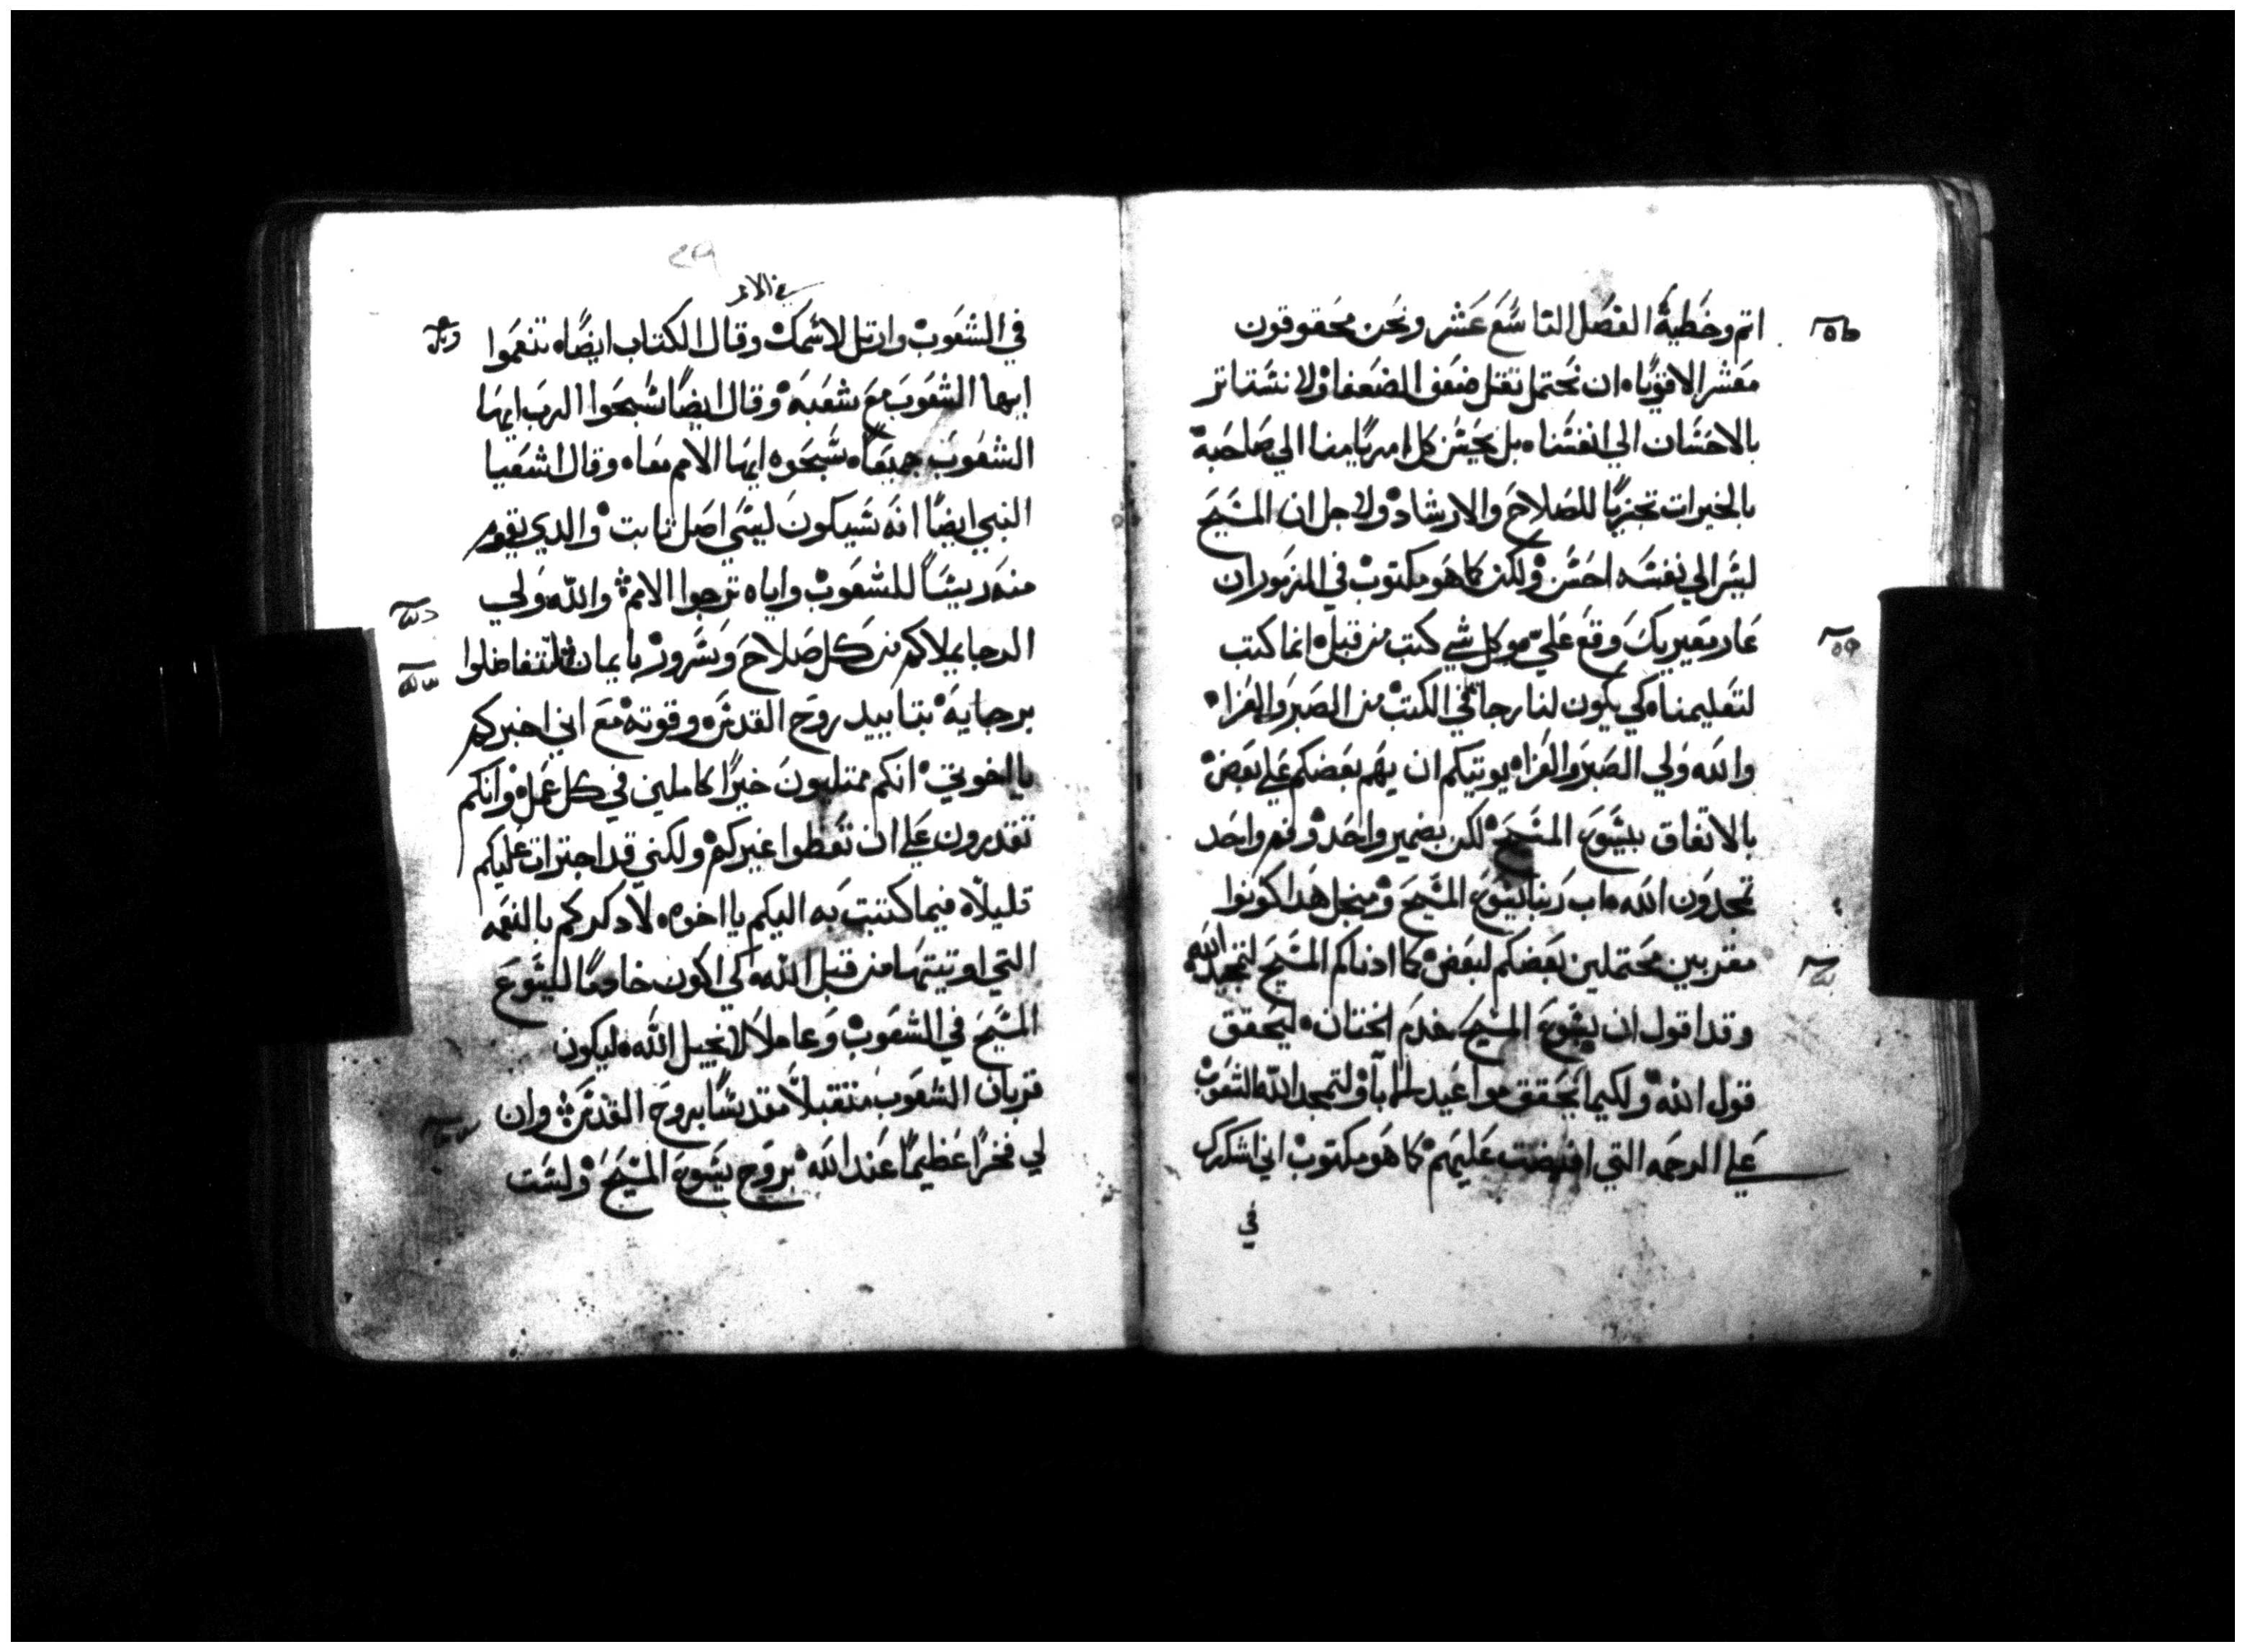 اتم وخطية الفصل التاسع عشر ونحن محقوقون
معشر الاقويا ان نحتمل ثقل ضعف الضعفا ولا نستاثر
بالاحسان الي انفسنا بل يحسن كل امريا منا الي صاحبة
بالخيرات تحريا للصلاح والارشاد ولاجل ان المسيح
ليس الي نفسه احسن ولكن كما هو مكتوب في المزمور ان
عار معيريك وقع علي وكل شي كتب من قبل انما كتب
لتعليمنا كي يكون لنا رجا في الكتب من الصبر والعزا
والله ولي الصبر والعزا يوتيكم ان يهم بعضكم علي بعض
بالاتفاق بيسوع المسيح لكن بضمير واحد وفم واحد
تمجدون الله اب ربنا يسوع المسيح ومنجل هدا كونوا
مقربين محتملين بعضكم لبعض كما ادناكم المسيح لتمجيد الله
وقد اقول ان يسوع المسيح خدم الختان ليحقق
قول الله ولكيما يحقق مواعيد الابا ولتمجد الله الشعوب
علي الرحمه التي افيضت عليهم كما هو مكتوب اني اشكرك
في
في الشعوب وارتل لاسمك وقال الكتاب ايضا تنعموا
ايها الشعوب مع شعبه وقال ايضا سبحوا الرب ايها
الشعوب جميعا سبحوه ايها الامم معا وقال اشعيا
النبي ايضا انه سيكون ليسي اصل ثابت والدي يقوم
منه رييسا للشعوب واياه ترجوا الامم والله ولي
الرجا يملاكم من كل صلاح وسرور بايمان لتتفاضلوا
برجايه بتاييد روح القدس وقوته مع اني اخبركم
يااخوتي انكم ممتليون خيرا كاملين في كل عمل وانكم
تقدرون علي ان تعظوا غيركم ولكني قد اجترات عليكم
قليلا فيما كتبت به اليكم يااخوه لادكركم بالنعمه
التي اوتيتها من قبل الله كي اكون خادما ليسوع
المسيح في الشعوب وعاملا لانجيل الله ليكون
قربان الشعوب متقبلا مقدسا بروح القدس وان
لي فخرا عظيما عند الله بروح يسوع المسيح ولست